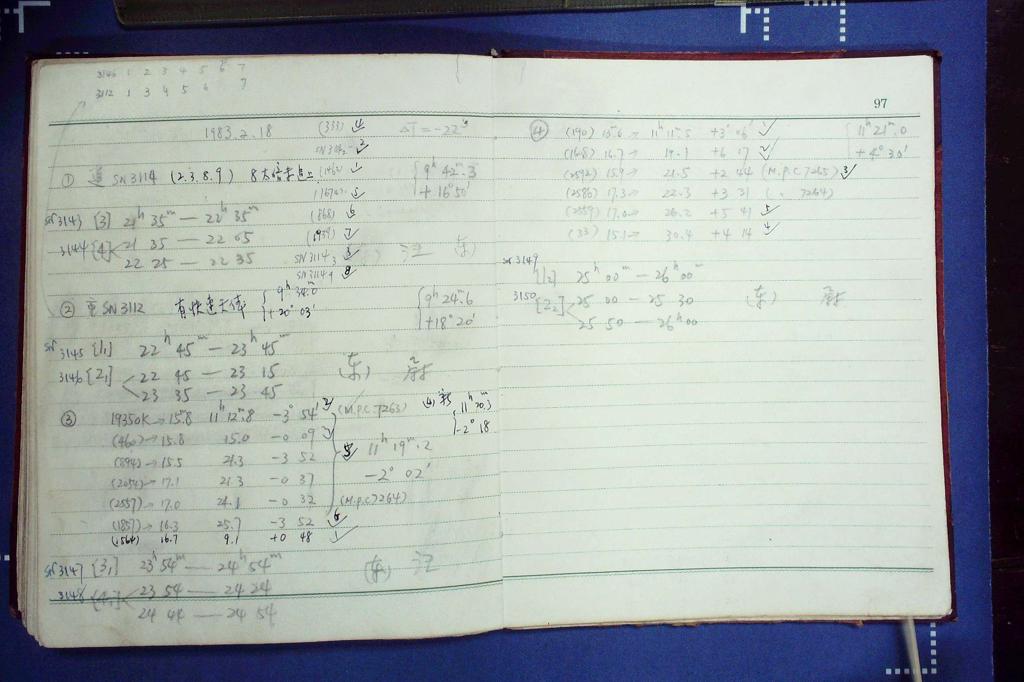 3146 1 2 3 4 5 6 7
3112 1 3 4 5 6 7
1983.2.18 (333) 4 ΔT=-22ˢ
2
① SN3114 (2.3.8.9) (1462) 1
{9ʰ 42ᵐ.3
+16°50′
(1674) 5
SN3143 [3] 21ʰ 35ᵐ — 22ʰ 35ᵐ (1868) 6
3144 [4] 21 35 — 22 05 7
22 25 — 22 35 SN3114₃ 3
(东) 汪
SN3114₉ 8
② SN3112 有快速天体 {9ʰ 34ᵐ.0
+20° 03′
{9ʰ 24ᵐ.6
+18° 20′
SN3145 [1₁] 22ʰ 45ᵐ — 23ʰ 45ᵐ
3146 [2₁] 22 45 — 23 15 (东)
23 35 — 23 45
③ 1935OK→15ᵐ.8 11ʰ 12ᵐ.8 -3° 54′ 2 (M.P.C.7263) (4) 新 {11ʰ 20.3
-2° 18
(460)→15.8 15.0 -0 09 3
(894)→15.5 21.3 -3 52 5 11ʰ 19ᵐ.2
(2054)→17.1 21.3 -0 37 -2° 02′
(2557)→17.0 24.1 -0 32 (M.P.C.7264)
(1857)→16.3 25.7 -3 52 6
(1564) 16.7 9.1 +0 48 1
SN3147 [3₁] 23ʰ 54ᵐ — 24ʰ 54ᵐ (东) 汪
3148 23 54 — 24 24
24 44 — 24 54
97
④ (190) 15ᵐ.6→ 11ʰ 11ᵐ.5 +3° 06′ 1 {11ʰ 21ᵐ.0
(1628) 16.7→ 19.1 +6 17 2 +4° 30′
(2592) 15.9→ 21.5 +2 44 (M.P.C.7265) 3
(2586) 17.3→ 22.3 +3 31 ( . 7264)
(2559) 17.0→ 26.2 +5 41 5
(33) 15.1→ 30.4 +4 14 4
SN3149 [1₂] 25ʰ 00ᵐ — 26ʰ 00ᵐ
3150 [2₂] 25 00 — 25 30 (东)
25 50 — 26ʰ 00